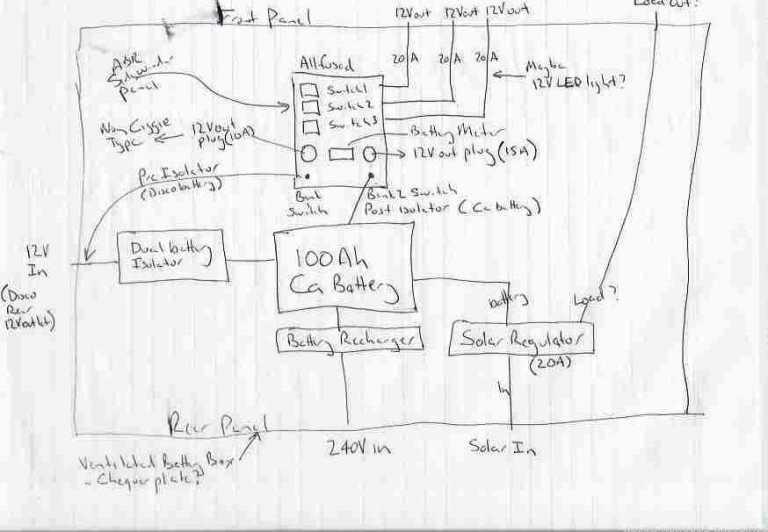 Front Panel
12Vout 12Vout 12Vout
Load out?
20A 20A 20A
Maybe
12V LED light?
All fused
Switch1
Switch2
Switch3
panel
Non Ciggie
Type
12Vout
plug(10A)
Battery Meter
12Vout plug(15A)
Pre Isolator
(Disco battery)
Bank
Switch
Bank 2 Switch
Post isolator (Ca battery)
12V
In
(Disco
Rear
12Voutlet)
Dual battery
Isolator
100Ah
Ca Battery
battery
Load?
Battery Recharger
Solar Regulator
(20A)
In
Rear Panel
240V in
Solar In
Ventilated Battery Box
- Chequerplate?